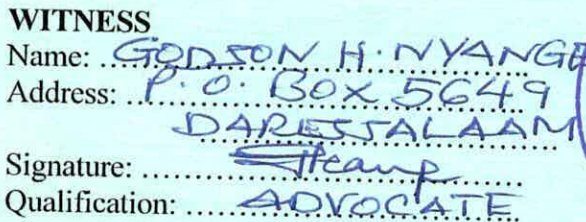 WITNESS
Name: GODSON H. NYANGE
Address: P.O. BOX 5649
DARESSALAAM
Signature:
Qualification: ADVOCATE